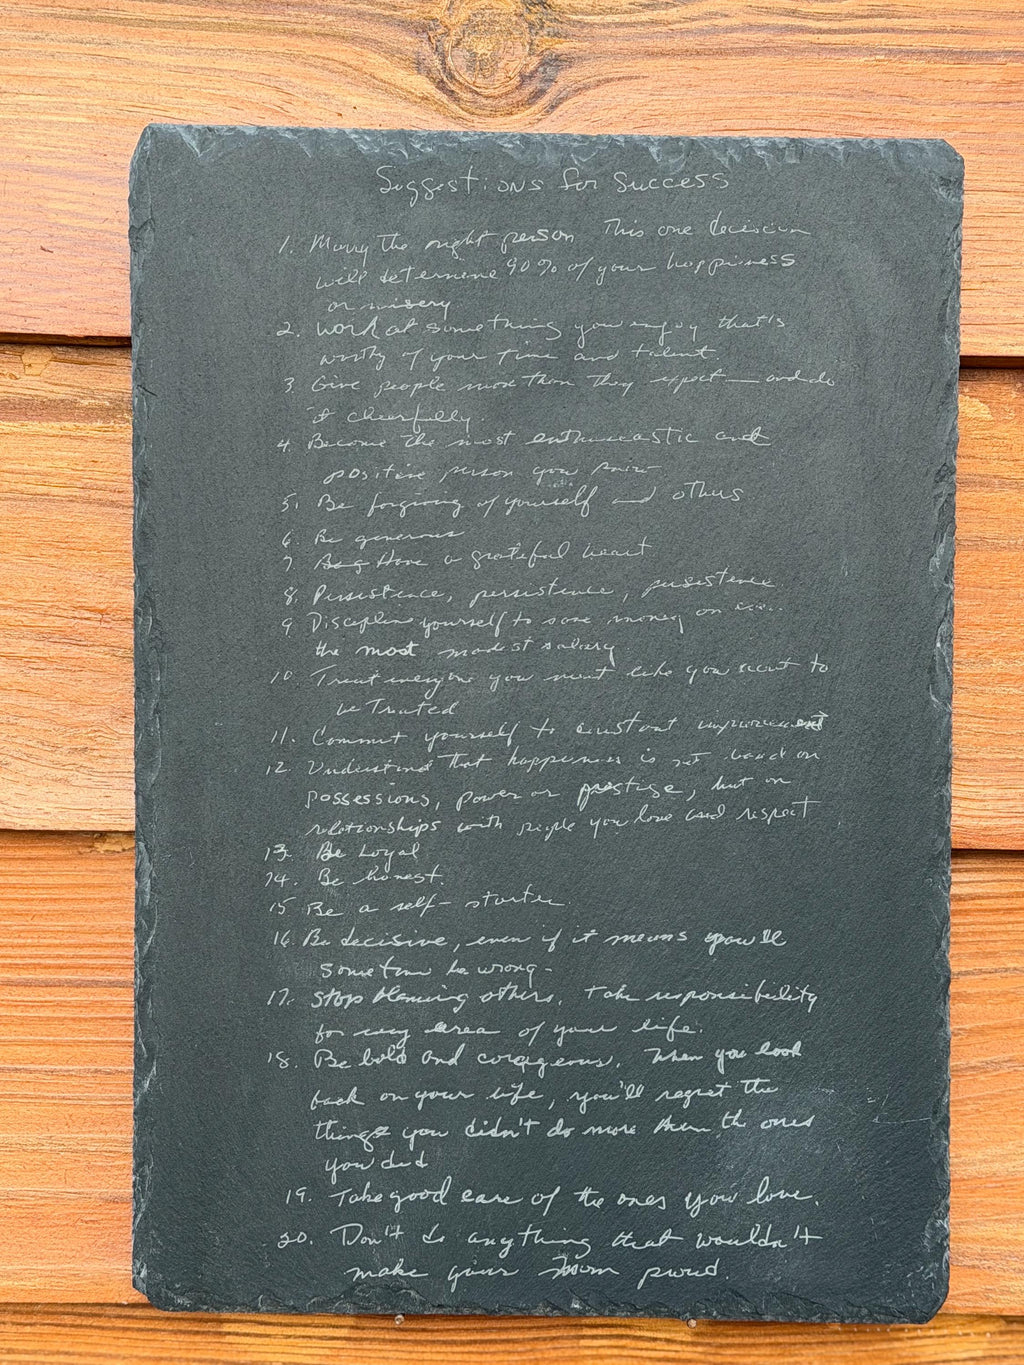 Suggestions for Success
1. Marry the right person This one decision
will determine 90% of your happiness
or misery.
2. Work at something you enjoy that's
worthy of your time and talent.
3. Give people more than they expect — and do
it cheerfully.
4. Become the most enthuseastic and
positive person you know
5. Be forgiving of yourself and others
6. Be generous
7 Have a grateful heart
8. Persistence, persistence, persistence
9 Discipline yourself to save money on
the most modest salary
10 Treat everyone you meet like you want to
be Treated
11. Commit yourself to constant improvement
12. Understand That happiness is not based on
possessions, power or prestige, but on
relationships with people you love and respect
13. Be Loyal
14. Be honest.
15 Be a self-starter.
16. Be decisive, even if it means you'll
sometime be wrong-
17. Stop blaming others. Take responsibility
for every area of your life.
18. Be bold and corageous. When you look
back on your life, you'll regret the
things you didn't do more than the ones
you did
19. Take good care of the ones you love.
20. Don't do anything that wouldn't
make your Mom proud.